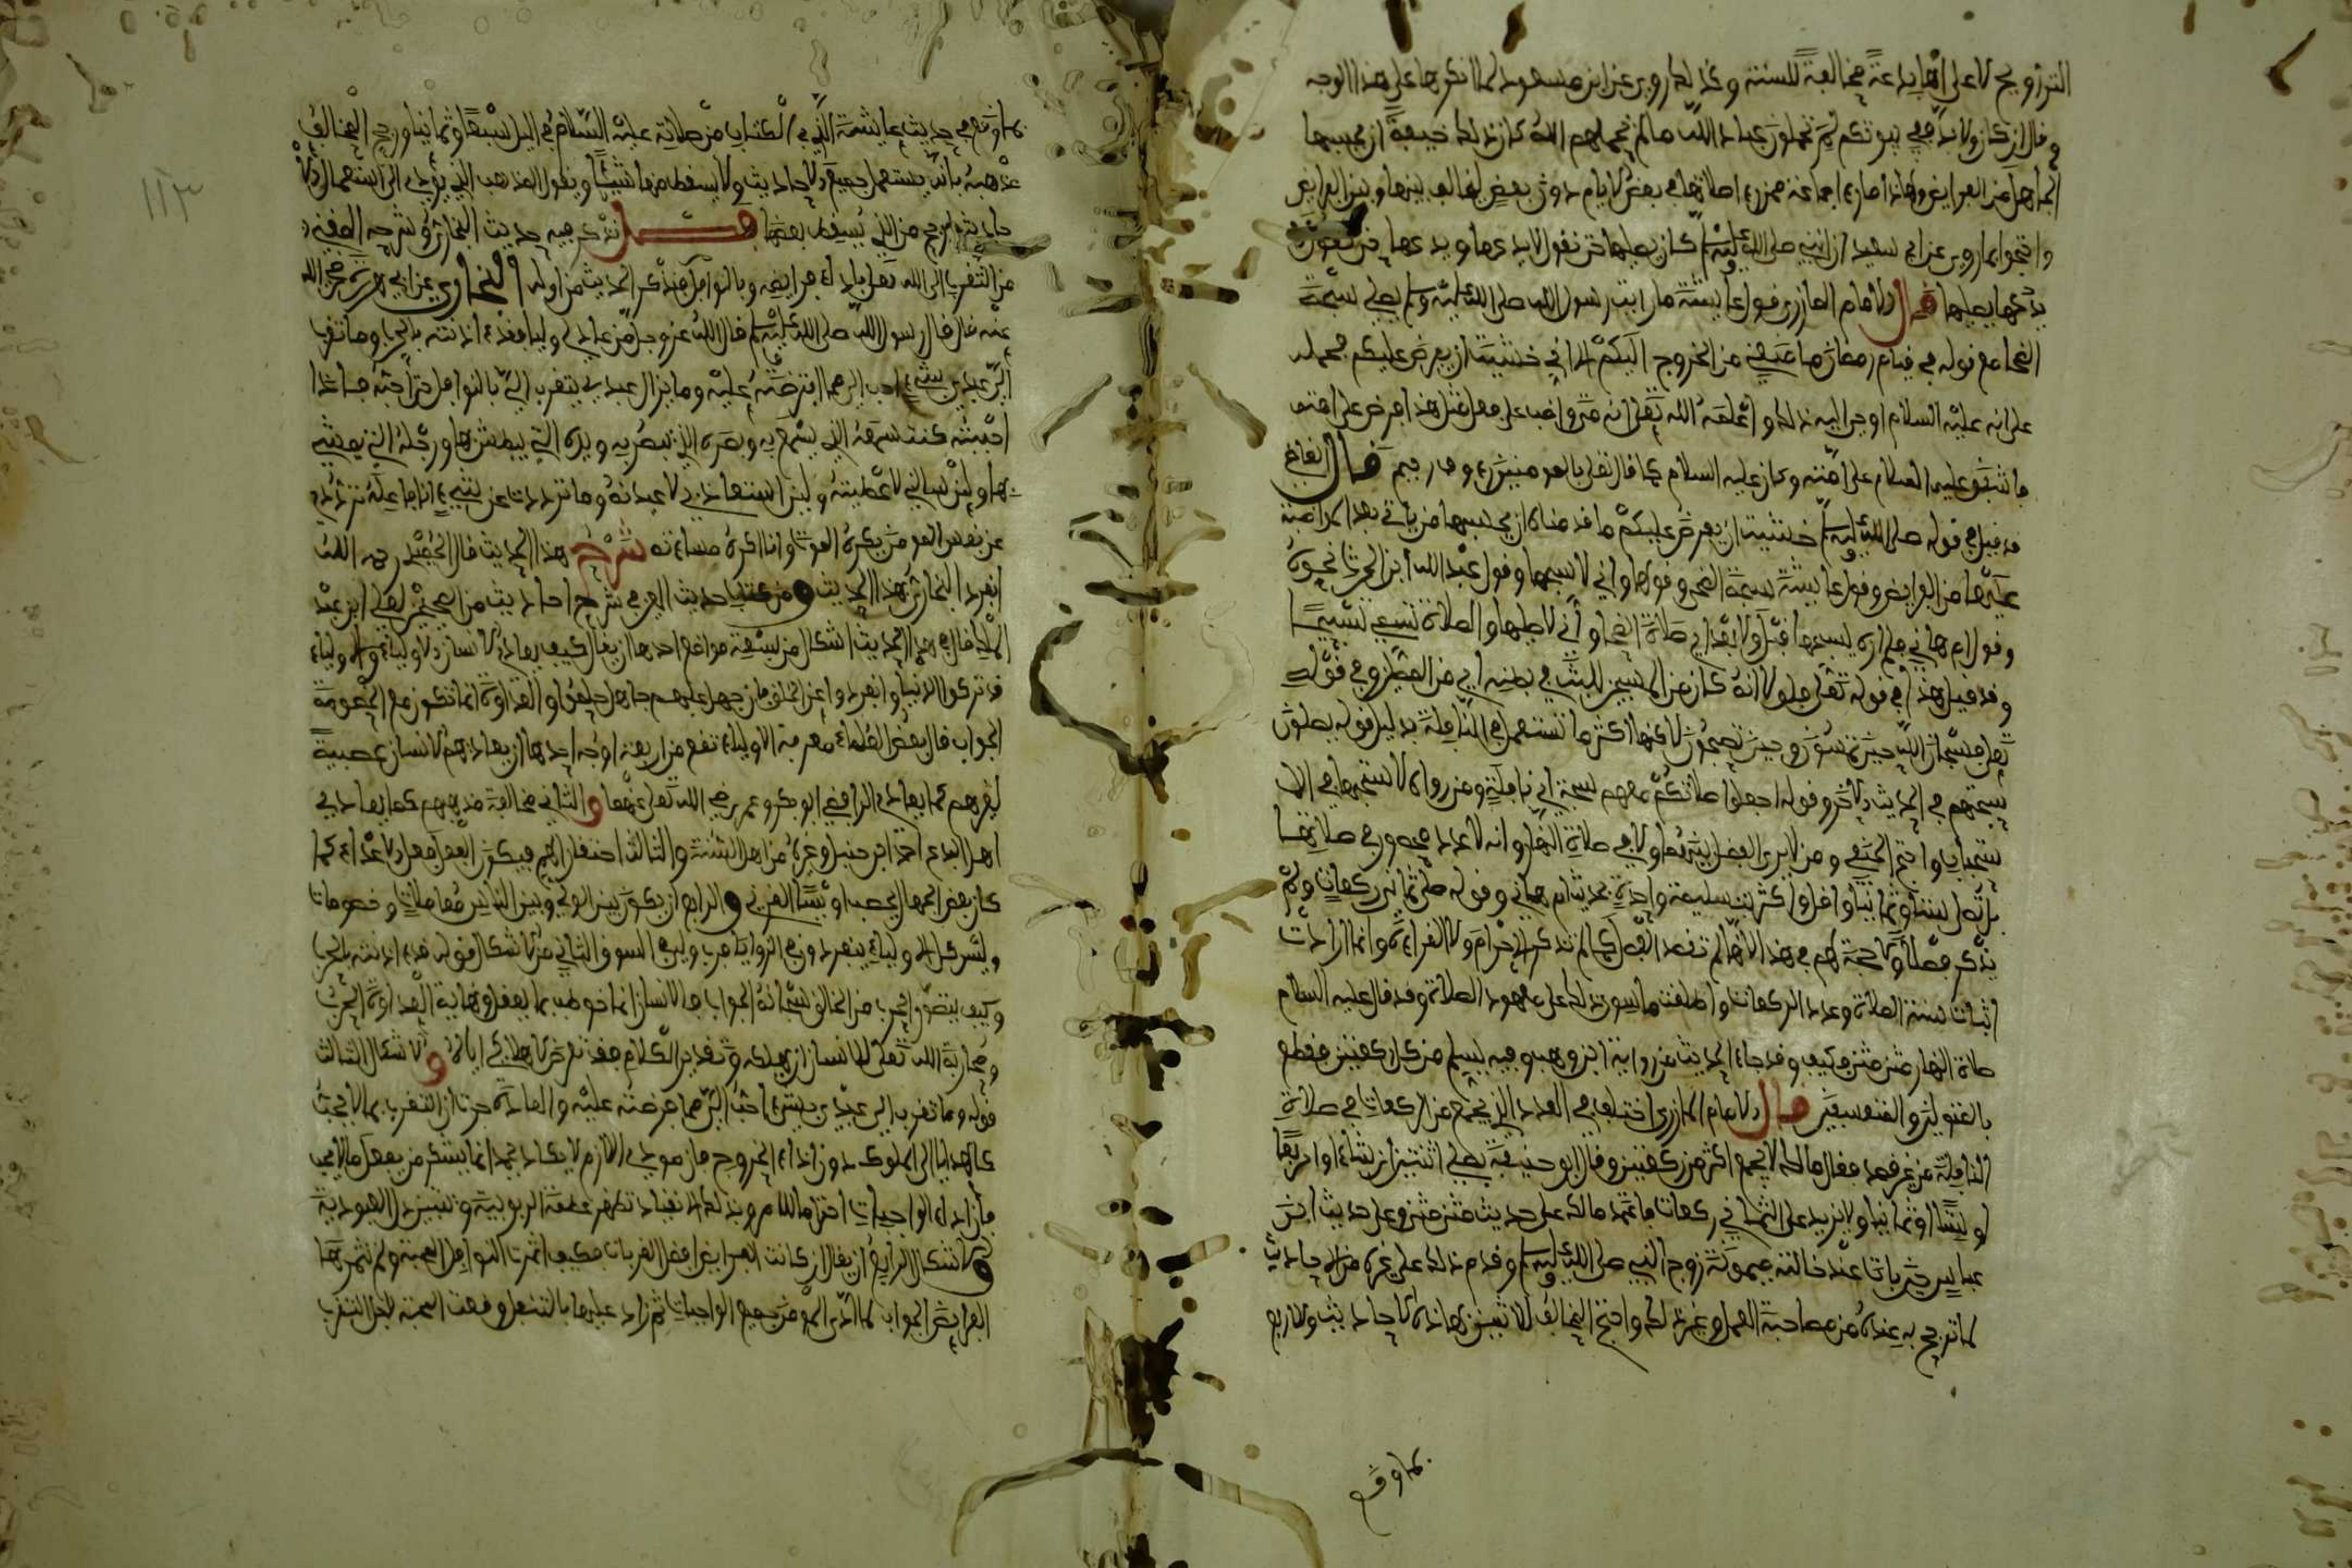 التزويج لا على انها بدعة مخالفة للسنة وكذلك روي عن ابن مسعود لما انكرها على هذا الوجه
وقال ان كان ولا بد ففي بيوتكم لم تحملون عباد الله ما لم يحملهم الله كان ذلك خيفة ان يحسبها
الجاهل من الفرايض ولهذا ما راى جماعة ممن راى صلاتها في بعض الايام دون بعض ليخالف بينها وبين الفرايض
واحتجوا بما روي عن ابي سعيد ان النبي صلى الله عليه وسلم كان يصليها حتى نقول لا يدعها ويدعها حتى نقول
يصليها قال الامام المازري قول عايشة ما رايت رسول الله صلى الله عليه وسلم يصلي سبحة
الضحا مع قوله في قيام رمضان ما منعني من الخروج اليكم الا اني خشيت ان يفرض عليكم محمله
على انه عليه السلام اوحي اليه ذلك او اعلمه الله تعلى انه متى واضب على فعل مثل هذا فرض على امته
فاشفق عليه السلام على امته وكان عليه السلام كما قال تعلى بالمومنين رءوف رحيم قال القاضي
قد قيل في قوله صلى الله عليه وسلم خشيت ان يفرض عليكم ما قدمناه ان يحسبها من ياتي بعد الامة
محلها من الفرايض وقول عايشة سبحة الضحى وقولها واني لاسبحها وقول عبد الله ابن الحرث نحوه
وقول ام هاني فلم اره يسبحها قبل ولا بعد اي صلاة الضحا واني لاصليها والصلاة تسمى تسبيحا
وقد قيل هذا في قوله تعلى فلولا انه كان من المسبحين للبث في بطنه اي من المصلين وفي قوله
تعلى فسبحان الله حين تمسون وحين تصبحون لاكنها اكثر ما تستعمل في النافلة بدليل قوله يصلون
سبحتهم في الحديث الاخر وقوله اجعلوا صلاتكم معهم سبحة اي نافلة ومن رواه لاستحبها في الا
ستحباب واحتج الحنفي ومن لا يرى الفصل بين تسليم اولا في صلاة النهار وانه لا عدد محصور في صلاتها
بل تصلى ستا وثمانيا واقل واكثر بتسليمة واحدة بحديث ام هاني وقوله صلى ثمان ركعات ولم
يذكر فصلا ولا حجة لهم في هذا لانها لم تقصد الفصل كما لم تذكر الاحرام ولا القراءة وانما ارادت
اثبات سنة الصلاة وعدد الركعات واطلقت ما سوى ذلك على معهود الصلاة وقد قال عليه السلام
صلاة النهار مثنى مثنى فكيف وقد جاء الحديث من رواية ابن وهب وفيه يسلم من كل ركعتين فقطع
قال الامام المازري اختلف في العدد الذي يجمع من الركعات في صلاة
النافلة من غير فصل فقال مالك لا يجمع اكثر من ركعتين وقال ابو حنيفة يصلي اثنتين ان شاء او اربعا
او ستا او ثمانيا ولا يزيد على الثماني ركعات فاعتمد مالك على حديث مثنى مثنى وعلى حديث ابن
عباس حين بات عند خالته ميمونة زوج النبي صلى الله عليه وسلم وقدم ذلك على غيره من الاحاديث
لما ترجح به عنده من مصاحبة العمل وغير ذلك واحتج المخالف لاثنتين بهاذه الاحاديث والاربع
بما وقع
بما وقع في حديث عايشة الذي في الكتاب من صلاته عليه السلام في اليل سبعا وثمانيا ورجح المخالف
مذهبه بانه يستعمل جميع الاحاديث ولا يسقط منها شيئا ويقول المذهب الذي يؤدي الى استعمال الا
حاديث ارجح من الذي يسقط بعضها فصل نذكر فيه حديث البخاري وشرحه
من التقرب الى الله تعلى باداء فرايضه وبالنوافل فنذكر الحديث من اوله البخاري عن ابي هريرة رضي الله
عنه قال قال رسول الله صلى الله عليه وسلم قال الله عز وجل من عادى لي وليا فقد ءاذنته بالحرب وما تقرب
الي عبدي بشيء احب الي مما افترضته عليه وما يزال عبدي يتقرب الي بالنوافل حتى احبه فاذا
احببته كنت سمعه الذي يسمع به وبصره الذي يبصر به ويده التي يبطش بها ورجله التي يمشي
بها ولين سالني لاعطينه ولين استعاذ بي لاعيذنه وما ترددت عن شيء انا فاعله ترددي
عن نفس المومن يكره الموت وانا اكره مساءته شرح هذا الحديث قال الحميدي رحمه الله
انفرد البخاري بهذا الحديث ومن حديث في شرح احاديث من الصحيحين
قال في هذا الحديث اشكال من سبعة مواضع احدها ان يقال كيف يعادي الانسان الاولياء والاولياء
قد تركوا الدنيا وانفردوا عن الخلق فان جهل عليهم جاهل حلموا والعداوة انما تكون مع الخصومة
الجواب قال بعض العلماء معرفة الاولياء تقع من اربعة اوجه احدها ان يعاديهم الانسان عصبية
لغيرهم كما يعادي الرافضي ابو بكر وعمر رضي الله تعلى عنهما والثاني مخالفة مذهبهم كما يعادي
اهل البدع احمد ابن حنبل وغيره من اهل السنة والثالث احتقارهم فيكون الفعل فعل الاعداء كما
كان بعض الجهال يحصب اويسا القرني والرابع ان يكون بين الولي وبين الناس معاملات وخصومات
وليس كل الاولياء ينفردون في الزوايا فرب ولي في السوق الثاني من الاشكال قوله فقد ءاذنته بالحرب
وكيف يتصور الحرب من الخالق سبحانه الجواب ان الانسان انما خوطب بما يعقل ونهاية العداوة الحرب
ومحاربة الله تعلى للانسان ان يهلكه وتقدير الكلام فقد تعرض لاهلاكي اياه والاشكال الثالث
قوله وما تقرب الي عبدي بشيء احب الي مما فرضته عليه والعادة جرت ان التقرب بما لا يجب
كالهدايا الى الملوك دون اداء الخروج فان مودي الازم لا يكاد يحمد انما يشكر من يفعل ما لا يجب
فان اداء الواجبات احتراما للامر وبذلك الانقياد تظهر عظمة الربوبية ويتبين ذل العبودية
والاشكال الرابع ان يقال ان كانت الفرايض افضل القربات فكيف اثمرت النوافل المحبة ولم تثمرها
الفرايض الجواب لما ادى المومن جميع الواجبات ثم زاد عليها بالتنفل وقعت المحبة لاجل التقرب
١١٣